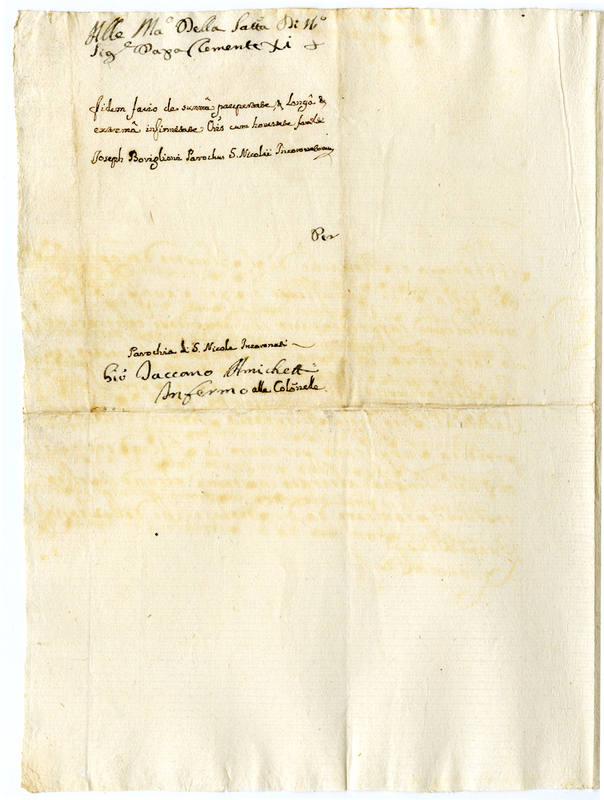 Alle Mã Della Sattà Di Nº
Sigre Papa Clemente XI +
fidem facio de summâ paupertate, & longâ &
extremâ infirmitate Oris cum honestate familie
Joseph Bovigliani Parochus S. Nicolii Incoronatorum
Per
Parochia di S. Nicola Incoronati
Gio Vaccano Amichetti
Infermo alle Colonelle